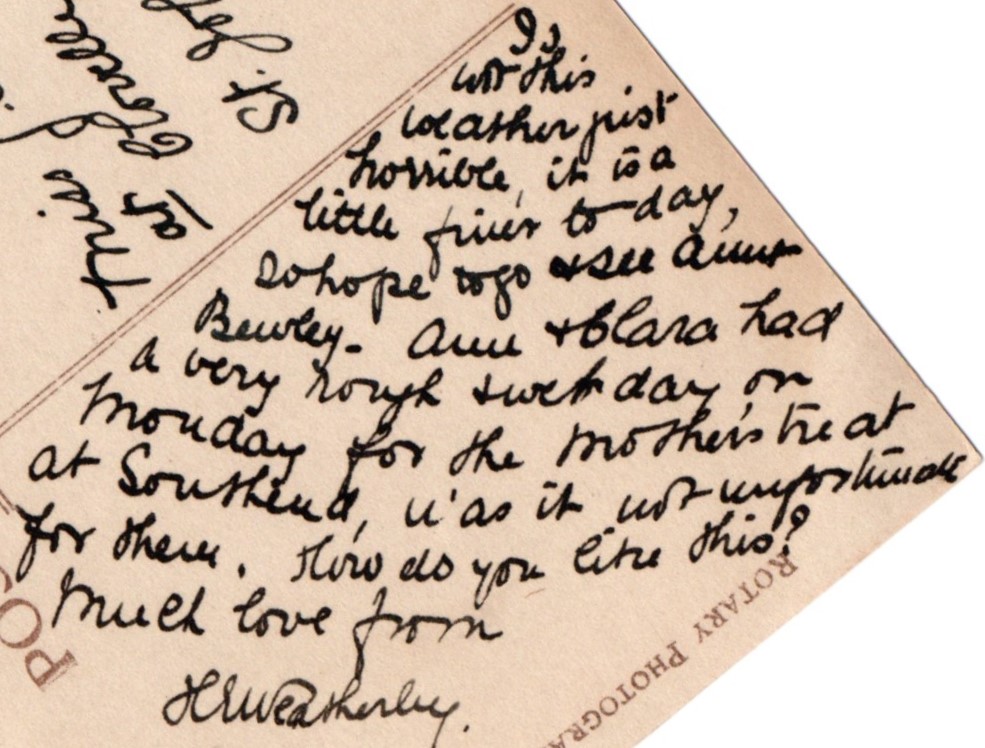 Is
not this
weather just
horrible, it is a
little finer to-day,
so hope to go & see Aunt
Bewley. Ann & Clara had
a very rough & wet day on
Monday for the Mother's treat
at Southend, was it not unfortunate
for them. How do you like this?
Much love from
HEWeatherley.
Miss
at
St.
POS
ROTARY PHOTOGRA